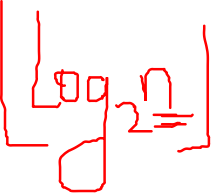 ⌊Log₂n⌋